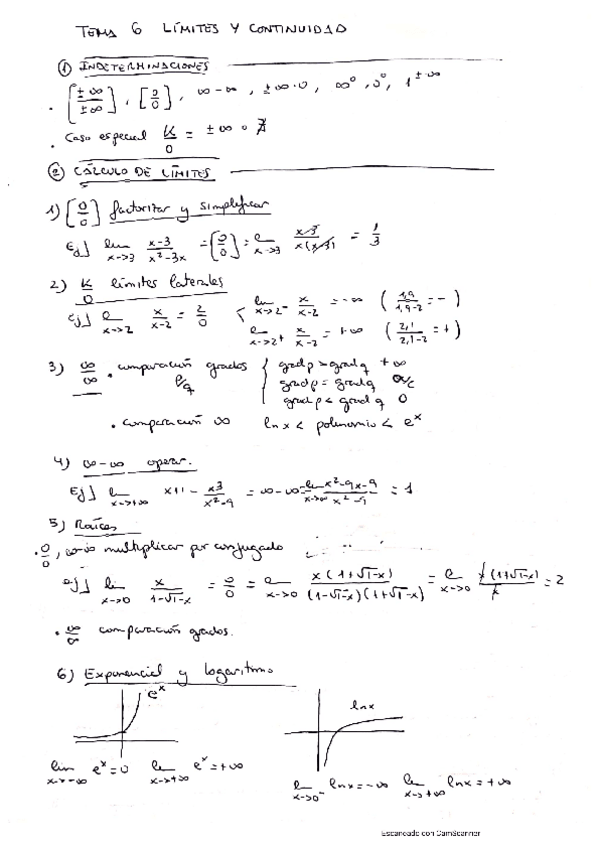 TEMA 6 LÍMITES Y CONTINUIDAD
① INDETERMINACIONES
· [±∞/±∞], [0/0], ∞-∞, ±∞·0, ∞⁰, 0⁰, 1^±∞
· Caso especial K/0 = ±∞ o ∄
② CÁLCULO DE LÍMITES
1) [0/0] factorizar y simplificar
Ej] lim x->3 x-3/x²-3x = [0/0] = l x->3 x-3/x(x-3) = 1/3
2) K/0 límites laterales
ej] l x->2 x/x-2 = 2/0 < lim x->2⁻ x/x-2 = -∞ (1,9/1,9-2 = -)
l x->2⁺ x/x-2 = +∞ (2,1/2,1-2 = +)
3) ∞/∞ · comparación grados P/q { grad p > grad q +∞
grad p = grad q a/c
grad p < grad q 0
· comparación ∞ ln x < polinomio < eˣ
4) ∞-∞ operar.
Ej] lim x->+∞ x+1 - x³/x²-9 = ∞-∞ = lim x->∞ x²-9x-9/x²-9 = 1
5) Raíces
· 0/0, ∞-∞ multiplicar por conjugado
ej] lim x->0 x/1-√1-x = 0/0 = l x->0 x(1+√1-x)/(1-√1-x)(1+√1-x) = l x->0 x(1+√1-x)/x = 2
· ∞/∞ comparación grados.
6) Exponencial y logaritmo
eˣ
ln x
lim x->-∞ eˣ = 0 lim x->+∞ eˣ = +∞
l x->0⁻ ln x = -∞ lim x->+∞ ln x = +∞
Escaneado con CamScanner